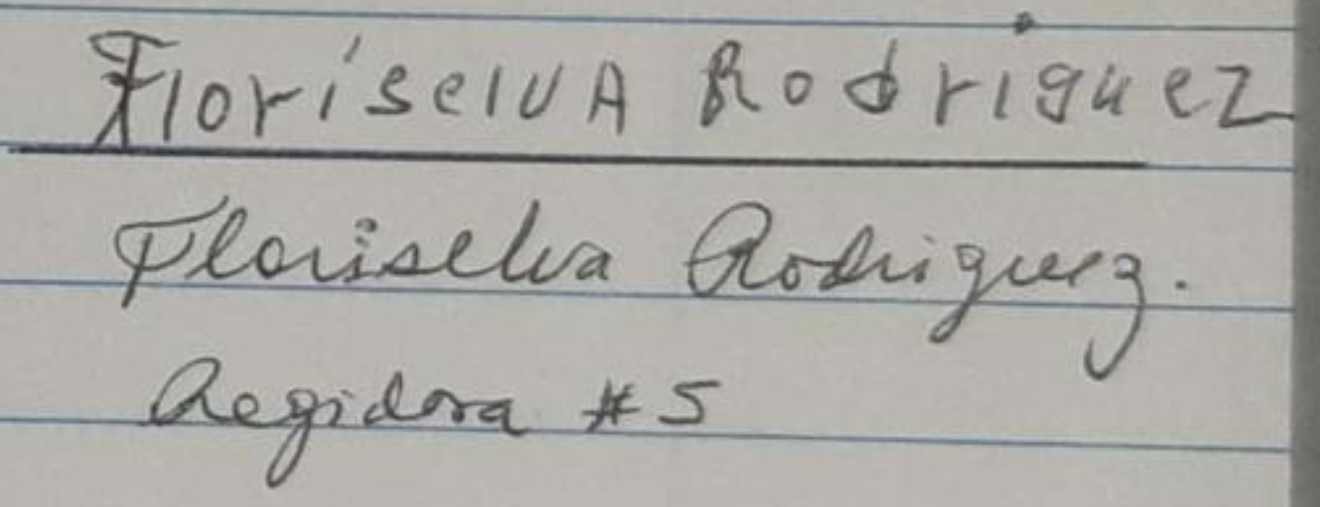 Floriselva Rodriguez
Floriselva Rodriguez.
Regidora #5